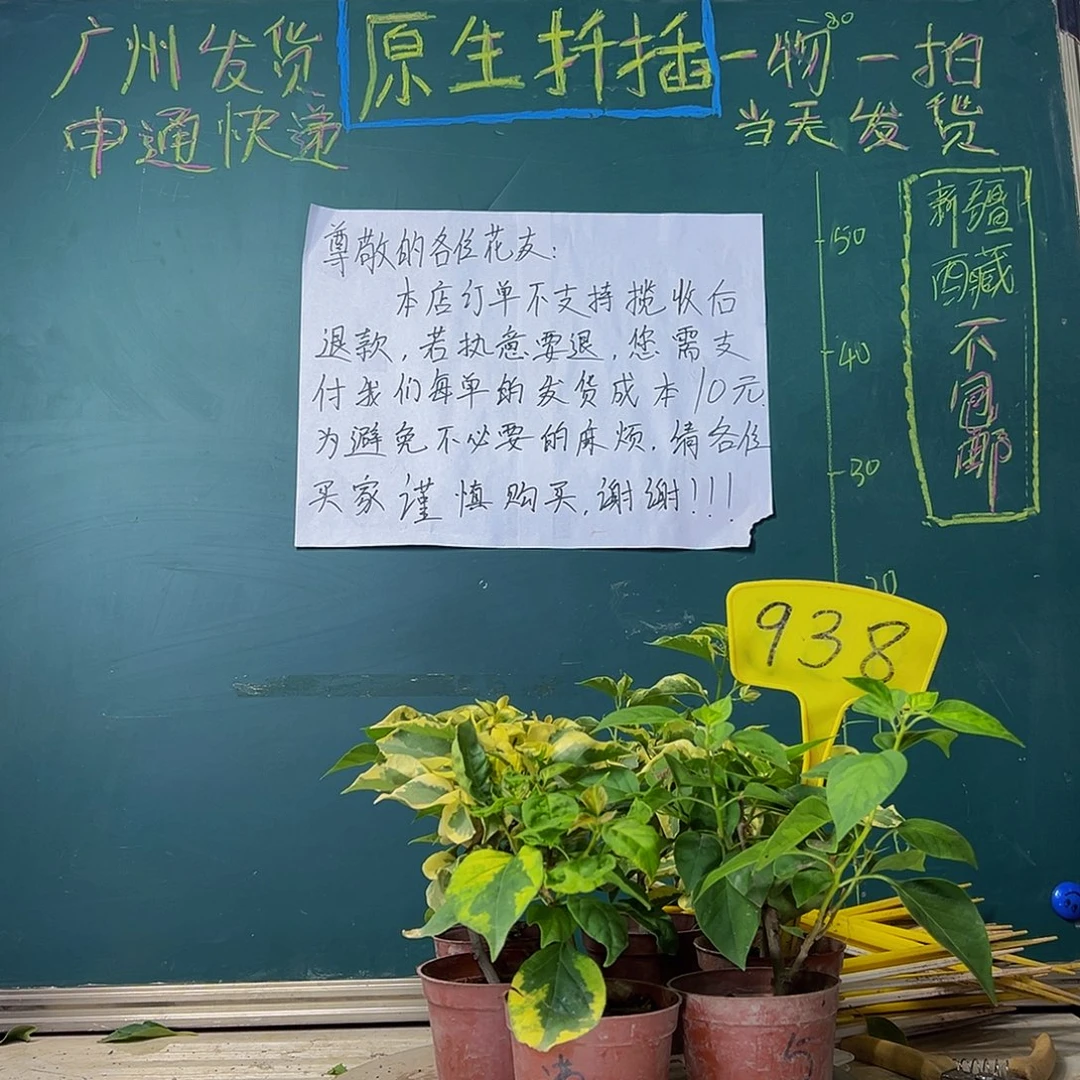 广州发货
申通快递
原生扦插
一物一拍
当天发货
80
50
40
30
20
新疆
西藏
不包邮
尊敬的各位花友:
本店订单不支持揽收后
退款,若执意要退,您需支
付我们每单的发货成本10元.
为避免不必要的麻烦.请各位
买家谨慎购买,谢谢!!!
938
5